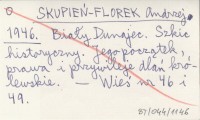 SKUPIEŃ-FLOREK Andrzej.
1946. Biały Dunajec. Szkic
historyczny. Jego początek,
prawa i przywileje dlań kró-
lewskie. — Wieś nr 46 i
49.
ET/044/1146